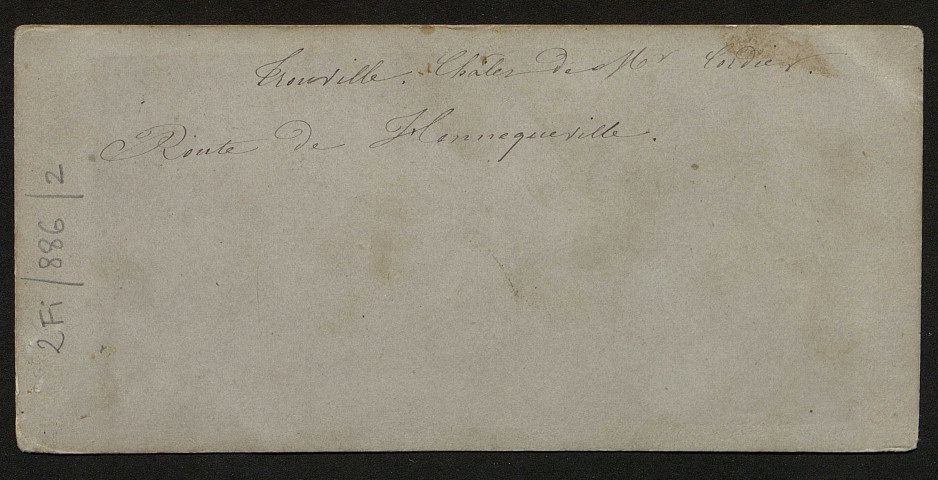 Trouville. Châlet de Mr Cordier.
Route de Hennequeville.
2Fi/886/2